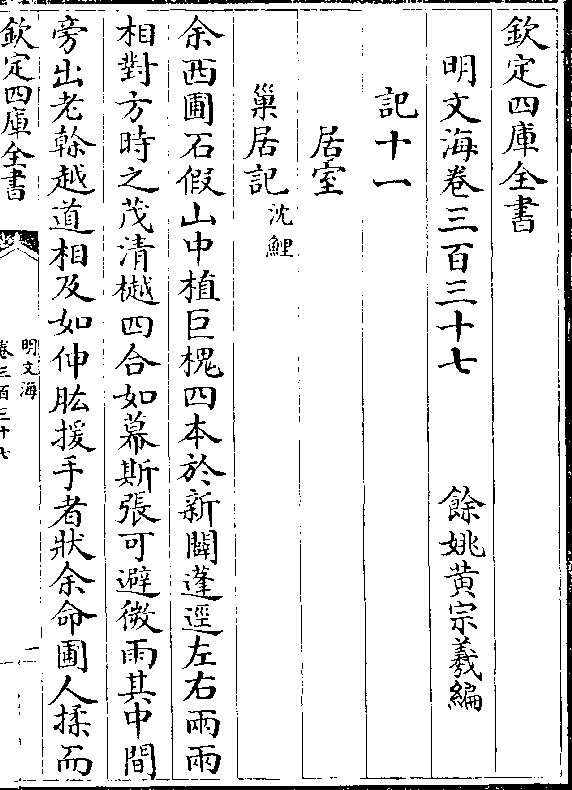 欽定四庫全書
明文海卷三百三十七 餘姚黄宗羲編
記十一
居室
巢居記沈鯉
余西圃石假山中植巨槐四本於新闢蓬逕左右兩兩
相對方時之茂清樾四合如幕斯張可避微雨其中間
旁出老榦越道相及如伸肱援手者狀余命圃人揉而
欽定四庫全書
明文海
卷三百三十七
一